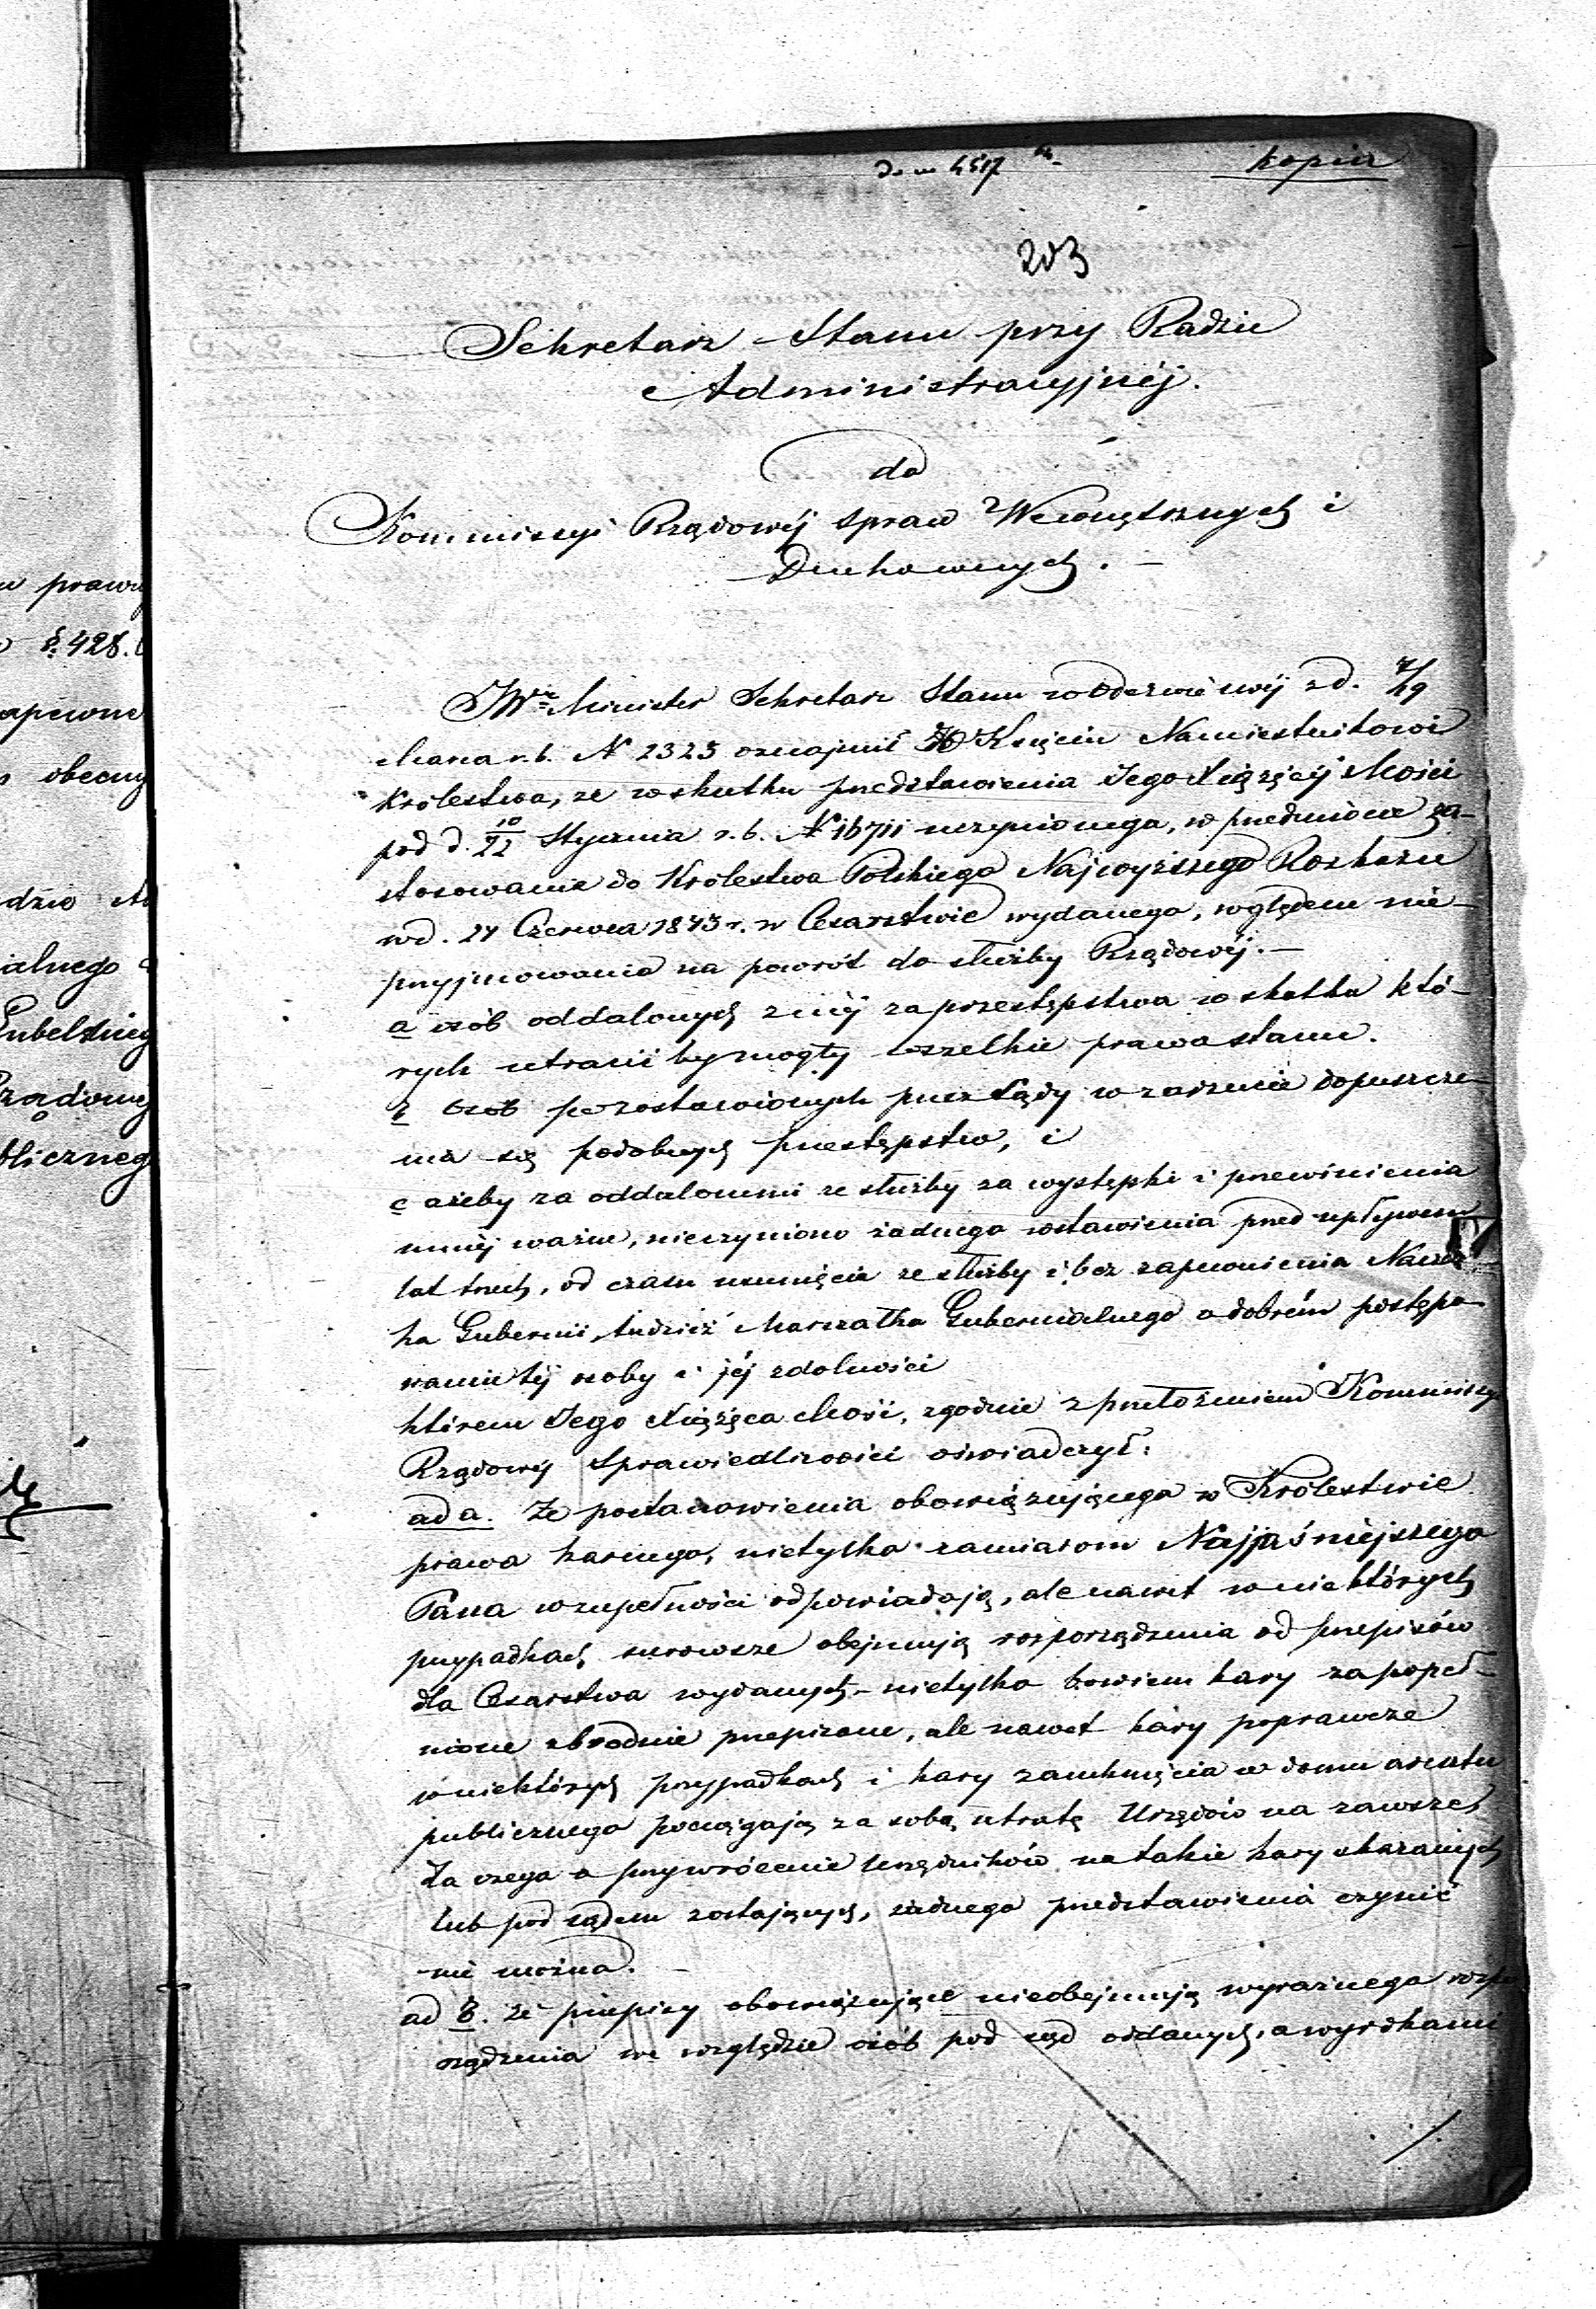 kopia
203
Sekretarz Stanu przy Radzie
Administracyjnéj.
do
Kommissyi Rządowéj Spraw Wewnętrznych i
Duchownych. —
JWny Minister Sekretarz Stanu w odezwie swéj z d. 7/19
Marca r. b. N 2325 oznajmił JO Księciu Namiestnikowi
Królestwa, że w skutku przedstawienia Jego Xiążęcéj Mości
pod d. 10/22 Stycznia r. b. N 16711 uczynionego, w przedmiocie za-
stosowania do Królestwa Polskiego Najwyższego Rozkazu
w d. 24 Czerwca 1843 r. w Cesarstwie wydanego, względem nie-
przyjmowania na powrót do służby Rządowéj. —
a osób oddalonych z niéj za przestępstwa w skutku któ-
rych utracić by mogły wszelkie prawa stanu.
b Osób pozostawionych przez Sądy w zarzucie dopuszcze-
nia się podobnych przestępstw, i
c ażeby za oddalonemi ze służby za występki i przewinienia
mniéj ważne, nieczyniono żadnego wstawienia przed upływem
lat trzech, od czasu usunięcia ze służby i bez zapewnienia Naczelni-
ka Gubernii, tudzież Marszałka Gubernialnego o dobrém postępo-
waniu téj osoby i jéj zdolności
którem Jego Xiążęca Mość, zgodnie z przełożeniem Kommissyi
Rządowéj Sprawiedliwości oświadczył:
ad a. Że postanowienia obowiązującego w Królestwie
prawa karnego, nietylko zamiarom Najjaśniejszego
Pana w zupełności odpowiadają, ale nawet w niektórych
przypadkach surowsze obejmują rozporządzenia od przepisów
dla Cesarstwa wydanych – nietylko bowiem kary za popeł-
nione zbrodnie przepisane, ale nawet kary poprawcze
w niektórych przypadkach i kary zamknięcia w domu aresztu
publicznego pociągają za sobą utratę Urzędów na zawsze,
dla czego o przywrócenie Urzędników na takie kary skazanych
lub pod sądem zostających, żadnego przedstawienia czynić
nie można. —
ad B. że przepisy obowiązujące nieobejmują wyraźnego rozpo
rządzenia we względzie osób pod sąd oddanych, a wyrokami
prawn
§ 428.
zapewne
obecny
ialnego
Lubelskieg
Rządowy
bliczneg